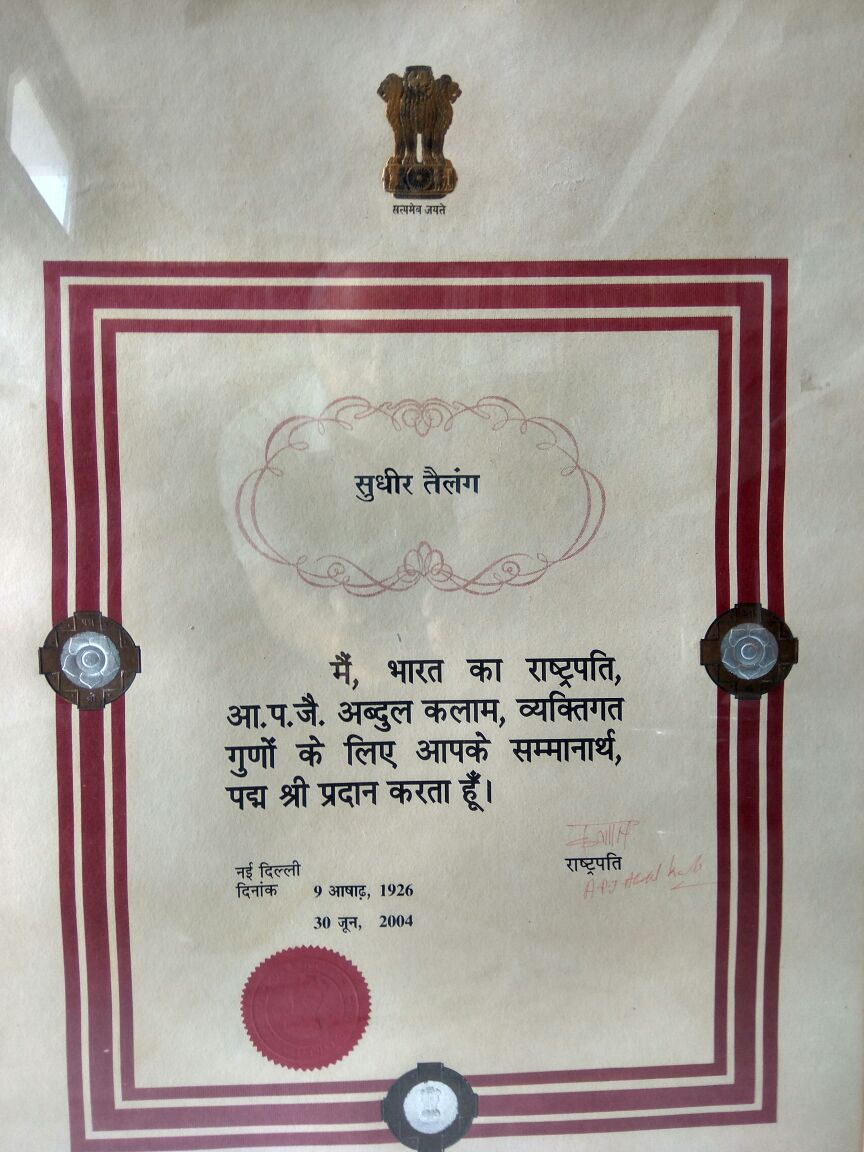 सत्यमेव जयते
सुधीर तैलंग
मैं, भारत का राष्ट्रपति,
आ.प.जै. अब्दुल कलाम, व्यक्तिगत
गुणों के लिए आपके सम्मानार्थ,
पद्म श्री प्रदान करता हूँ।
राष्ट्रपति
नई दिल्ली
दिनांक 9 आषाढ़, 1926
30 जून, 2004